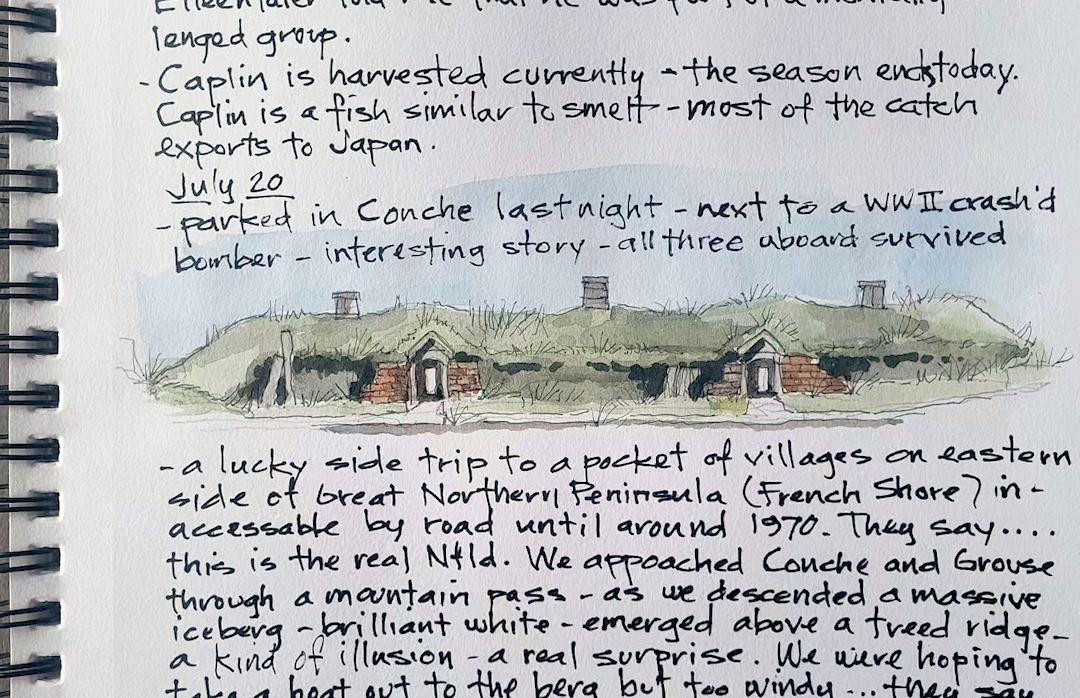 told me that he was part of a mentally
lenged group.
- Caplin is harvested currently - the season ends today.
Caplin is a fish similar to smelt - most of the catch
exports to Japan.
July 20
- parked in Conche last night - next to a WWII crash'd
bomber - interesting story - all three aboard survived
- a lucky side trip to a pocket of villages on eastern
side of Great Northern Peninsula (French Shore) in-
accessable by road until around 1970. They say....
this is the real Nfld. We appoached Conche and Grouse
through a mountain pass - as we descended a massive
iceberg - brilliant white - emerged above a treed ridge -
a kind of illusion - a real surprise. We were hoping to
take a boat out to the berg but too windy ... they say